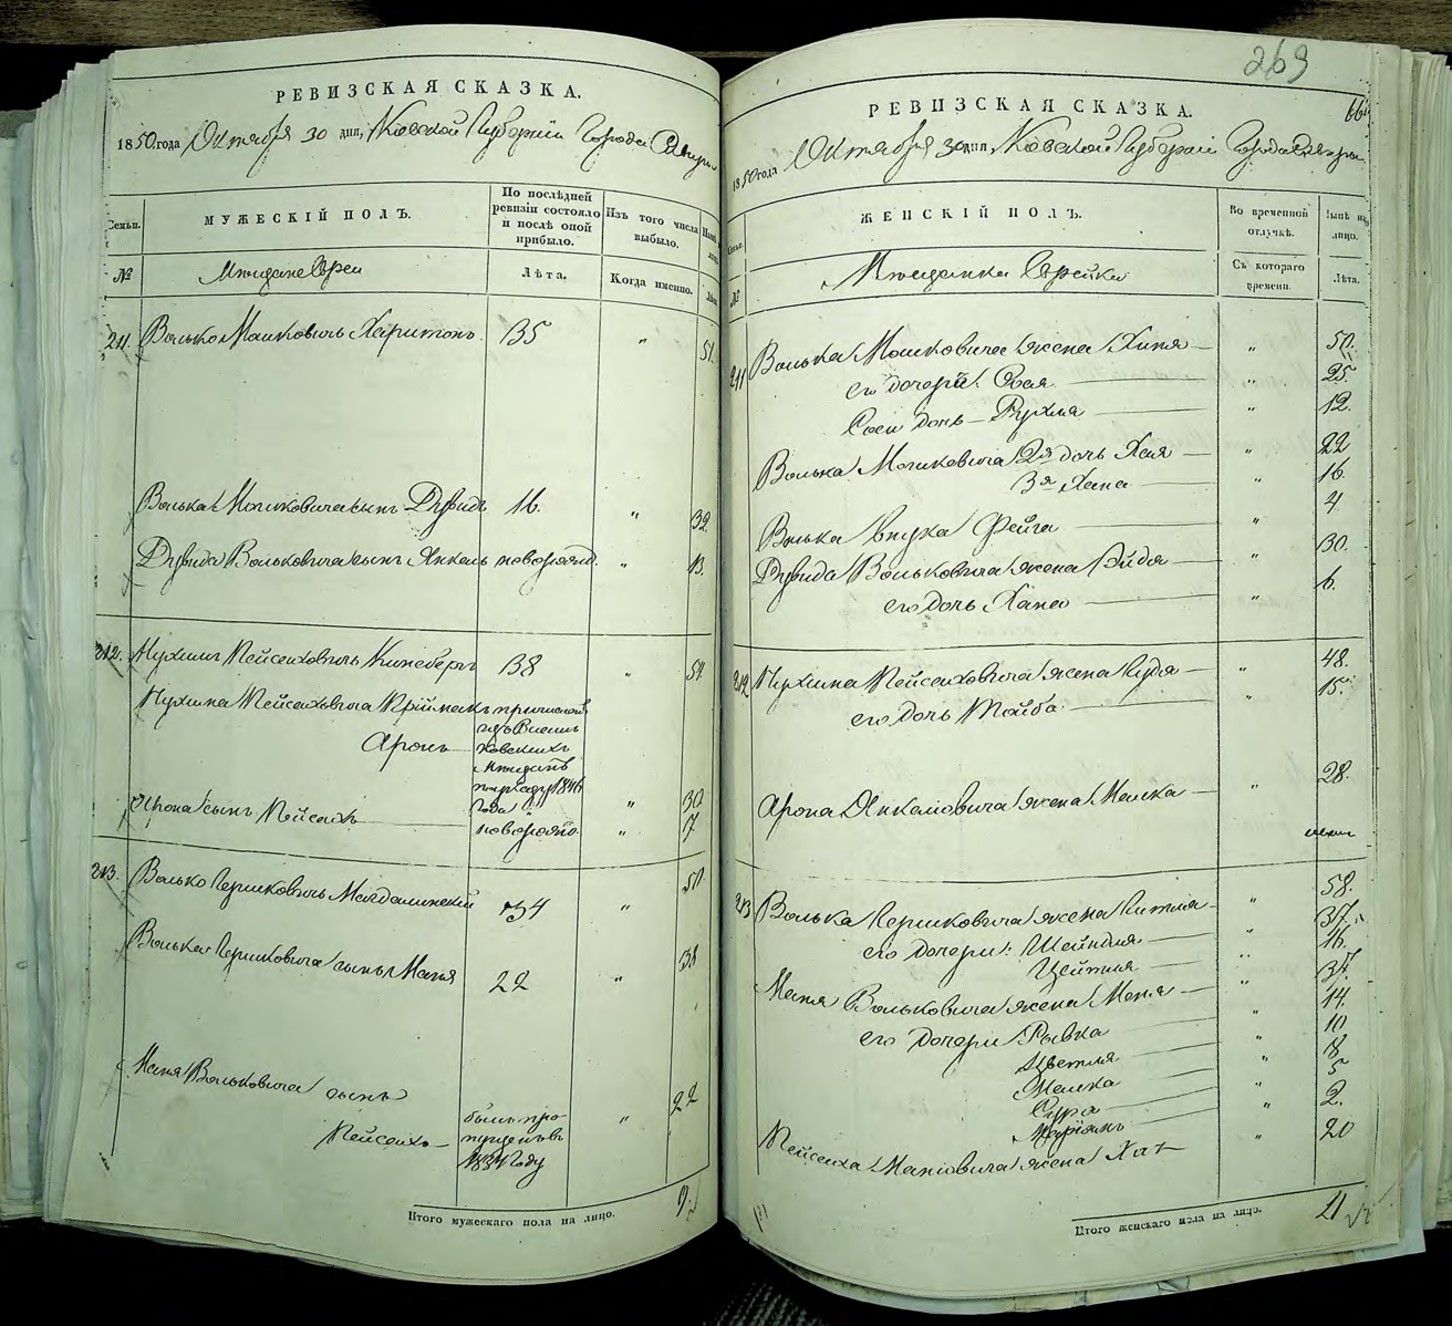 РЕВИЗСКАЯ СКАЗКА.
1850 года Октября 30 дня, Киевской Губернии Города Сквиры
Семьи.
МУЖЕСКІЙ ПОЛЪ.
По послѣдней ревизіи состояло и послѣ оной прибыло.
Изъ того числа выбыло.
№
Мѣщане Евреи
Лѣта.
Когда именно.
Лѣта
211. Волько Мошковичъ Харитонъ 35 " 51.
Волька Мошковича сынъ Дувидъ 16. " 32.
Дувида Вольковича сынъ Янкель новорожд. " 13.
212. Нухимъ Пейсаховичъ 38 " 54.
Нухима Пейсаховича Пріймакъ
Аронъ
причисленъ
изъ
мѣщанъ
въ 1846
года " 30
Арона сынъ Пейсахъ новорожд. " 7
213. Волько Гершковичъ 34 " 50
Волька Гершковича сынъ Маня 22 " 38
Маня Вольковича сынъ
Пейсахъ
былъ про-
пущенъ въ
1834 Году
" 22
Итого мужескаго пола на лицо. 9
269
66
РЕВИЗСКАЯ СКАЗКА.
1850 года Октября 30 дня, Киевской Губерніи Города Сквиры
ЖЕНСКІЙ ПОЛЪ.
Во временной отлучкѣ.
Нынѣ на лицо.
№
Мѣщанки Еврейки
Съ котораго времени.
Лѣта.
211 Волька Мошковича жена Хиня " 50.
его дочери: Сося " 25.
Соси дочь Рухля " 12.
Волька Мошковича 2я дочь Хая " 22
3я Хана " 16.
Волька внука Фейга " 4
Дувида Вольковича жена Эйдя " 30.
его дочь Хана " 6.
212 Нухима Пейсаховича жена " 48.
его дочь Тойба " 15.
Арона Янкелевича жена Малка " 28.
213 Волька Гершковича жена Гитля " 58.
его дочери: Шейндля " 37.
Цейтля " 16.
Маня Вольковича жена Меня " 37.
его дочери Рывка " 14.
Цветля " 10
Малка " 8
Сура " 5
" 2.
Пейсаха Маніовича жена " 20
Итого женскаго пола на лицо. 21